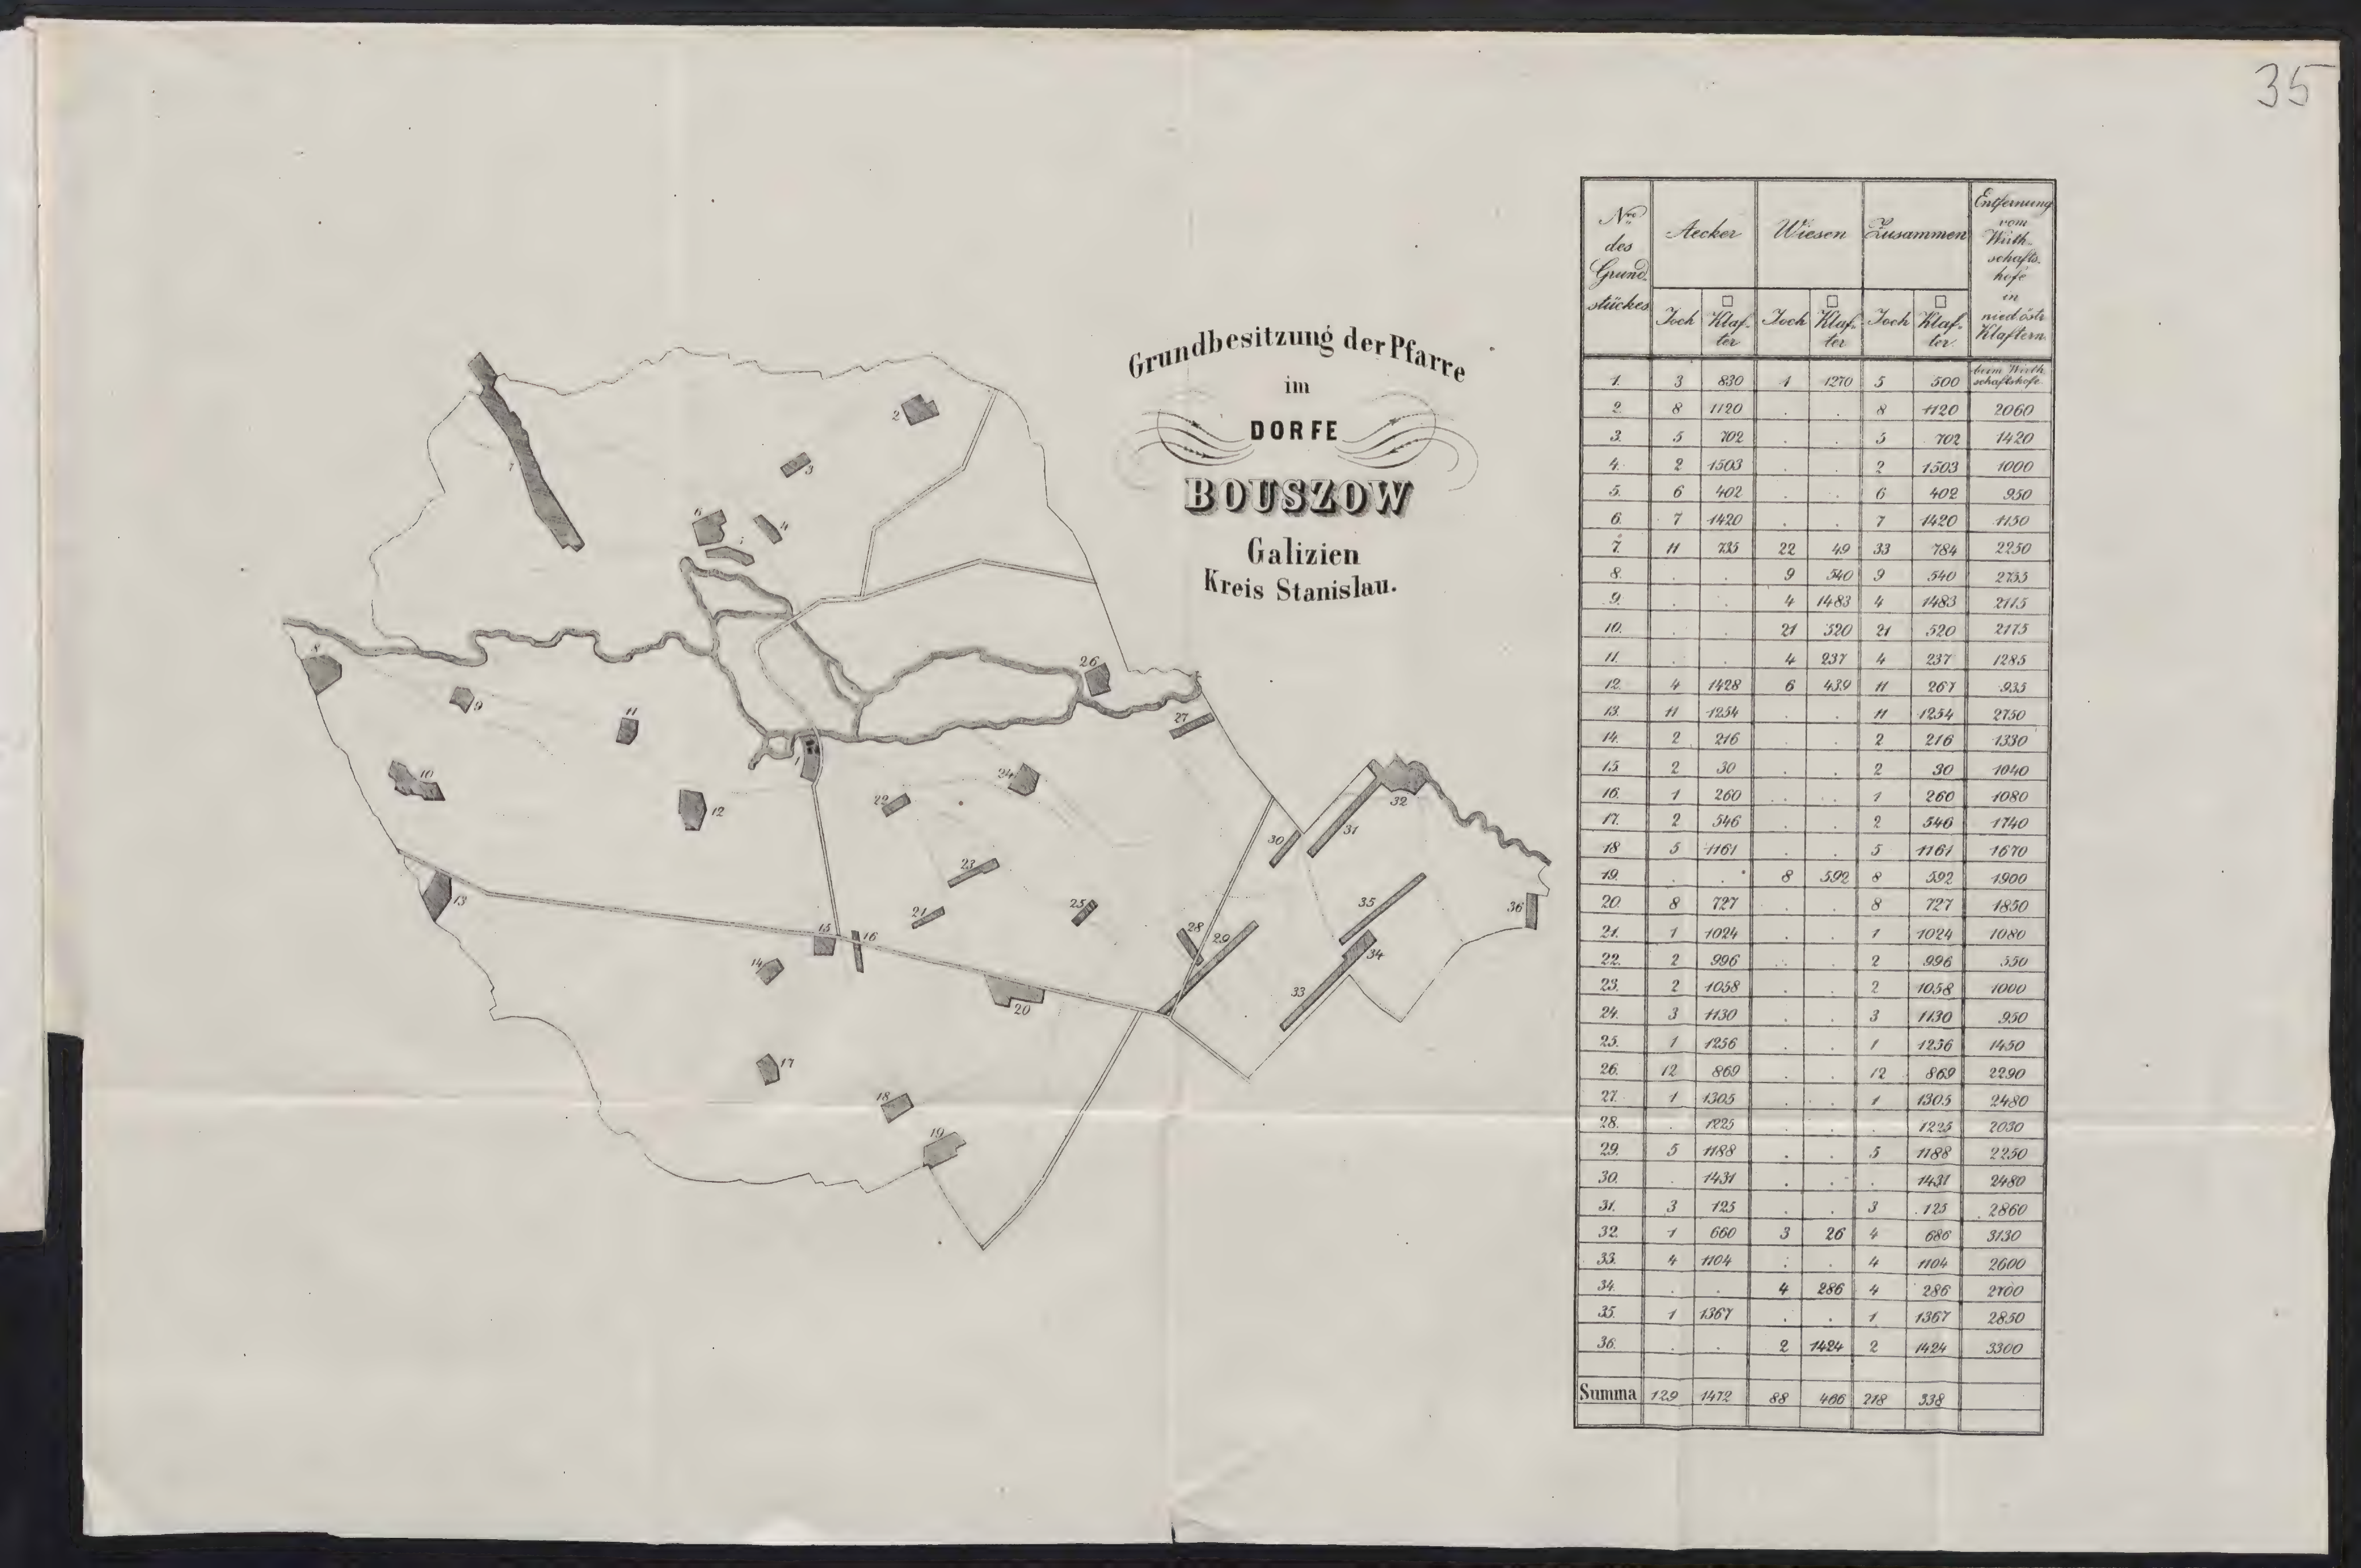 35
Grundbesitzung der Pfarre
im
DORFE
BOUSZOW
Galizien
Kreis Stanislau.
Nro des Grundstückes | Aecker | Wiesen | Zusammen | Entfernung vom Wirthschaftshofe in nied.östr. Klaftern
Joch | □ Klafter | Joch | □ Klafter | Joch | □ Klafter
1. 3 830 1 1270 5 500 beim Wirthschaftshofe
2. 8 1120 . . 8 1120 2060
3. 5 702 . . 5 702 1420
4. 2 1503 . . 2 1503 1000
5. 6 402 . . 6 402 950
6. 7 1420 . . 7 1420 1150
7. 11 735 22 49 33 784 2250
8. . . 9 540 9 540 2735
9. . . 4 1483 4 1483 2115
10. . . 21 520 21 520 2175
11. . . 4 237 4 237 1285
12. 4 1428 6 439 11 267 935
13. 11 1254 . . 11 1254 2750
14. 2 216 . . 2 216 1330
15. 2 30 . . 2 30 1040
16. 1 260 . . 1 260 1080
17. 2 546 . . 2 546 1740
18 5 1161 . . 5 1161 1670
19. . . 8 592 8 592 1900
20. 8 727 . . 8 727 1850
21. 1 1024 . . 1 1024 1080
22. 2 996 . . 2 996 550
23. 2 1058 . . 2 1058 1000
24. 3 1130 . . 3 1130 950
25. 1 1256 . . 1 1256 1450
26. 12 869 . . 12 869 2290
27. 1 1305 . . 1 1305 2480
28. . 1225 . . . 1225 2030
29. 5 1188 . . 5 1188 2250
30. . 1431 . . . 1431 2480
31. 3 125 . . 3 125 2860
32. 1 660 3 26 4 686 3130
33. 4 1104 . . 4 1104 2600
34. . . 4 286 4 286 2700
35. 1 1367 . . 1 1367 2850
36. . . 2 1424 2 1424 3300
Summa 129 1472 88 466 218 338
2
3
7
6
4
8
26
9
11
27
1
10
24
32
22
12
31
30
23
13
35
25
36
21
28
15
16
29
34
14
33
20
17
18
19